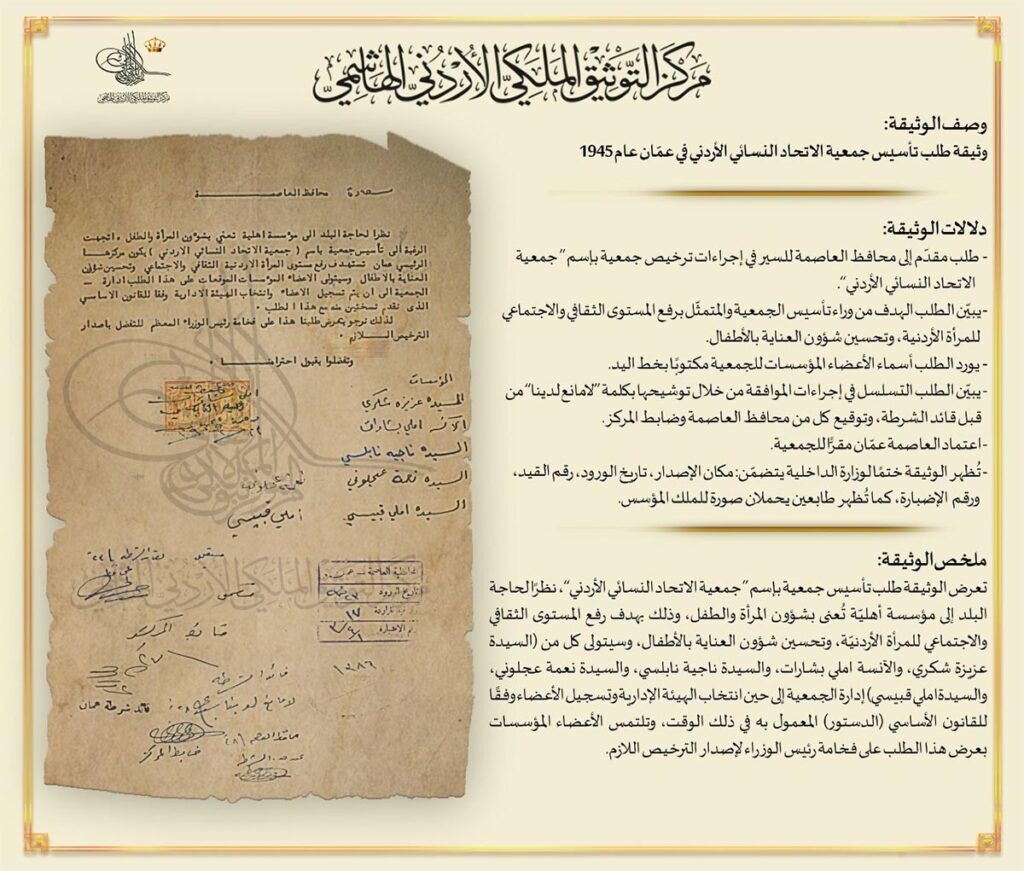 مركز التوثيق الملكي الأردني الهاشمي
مَركَزُ التَّوثيقِ المَلَكيِّ الأُردُنيِّ الهاشِميِّ
وصف الوثيقة:
وثيقة طلب تأسيس جمعية الاتحاد النسائي الأردني في عمّان عام 1945
دلالات الوثيقة:
- طلب مقدّم إلى محافظ العاصمة للسير في إجراءات ترخيص جمعية بإسم "جمعية
الاتحاد النسائي الأردني".
-يبيّن الطلب الهدف من وراء تأسيس الجمعية والمتمثّل برفع المستوى الثقافي والاجتماعي
للمرأة الأردنية، وتحسين شؤون العناية بالأطفال.
- يورد الطلب أسماء الأعضاء المؤسسات للجمعية مكتوبًا بخط اليد.
- يبيّن الطلب التسلسل في إجراءات الموافقة من خلال توشيحها بكلمة "لامانع لدينا" من
قبل قائد الشرطة، وتوقيع كل من محافظ العاصمة وضابط المركز.
-اعتماد العاصمة عمّان مقرًّا للجمعية.
-تُظهر الوثيقة ختمًا لوزارة الداخلية يتضمّن: مكان الإصدار، تاريخ الورود، رقم القيد،
ورقم الإضبارة، كما تُظهر طابعين يحملان صورة للملك المؤسس.
ملخص الوثيقة:
تعرض الوثيقة طلب تأسيس جمعية بإسم "جمعية الاتحاد النسائي الأردني"، نظرًا لحاجة
البلد إلى مؤسسة أهليّة تُعنى بشؤون المرأة والطفل، وذلك بهدف رفع المستوى الثقافي
والاجتماعي للمرأة الأردنيّة، وتحسين شؤون العناية بالأطفال، وسيتولى كل من (السيدة
عزيزة شكري، والآنسة املي بشارات، والسيدة ناجية نابلسي، والسيدة نعمة عجلوني،
والسيدة املي قبيسي) إدارة الجمعية إلى حين انتخاب الهيئة الإدارية وتسجيل الأعضاء وفقًا
للقانون الأساسي (الدستور) المعمول به في ذلك الوقت، وتلتمس الأعضاء المؤسسات
بعرض هذا الطلب على فخامة رئيس الوزراء لإصدار الترخيص اللازم.
محافظ العاصمة
نظرا لحاجة البلد الى مؤسسة اهلية تعنى بشؤون المرأة والطفل ، اتجهت
الرغبة الى تأسيس جمعية باسم ( جمعية الاتحاد النسائي الاردني ) يكون مركزها
الرئيسي عمان تستهدف رفع مستوى المرأة الاردنية الثقافي والاجتماعي وتحسين شؤون
العناية بالاطفال وسيتولى الاعضاء المؤسسات الموقعات على هذا الطلب ادارة
الجمعية الى ان يتم تسجيل الاعضاء وانتخاب الهيئة الادارية وفقا للقانون الاساسي
الذى نقدم نسختين منه مع هذا الطلب .
لذلك نرجو بعرض طلبنا هذا على فخامة رئيس الوزراء المعظم للتفضل باصدار
الترخيص اللازم .
وتفضلوا بقبول احترامنا .
المؤسسات
السيده عزيزه شكري
الآنسه املي بشارات
السيده ناجيه نابلسي
السيده نعمة عجلوني
السيده املي قبيسي
املي قبيسي
ضابط المركز
قائد الشرطة
قائد شرطة عمان
ضابط المركز